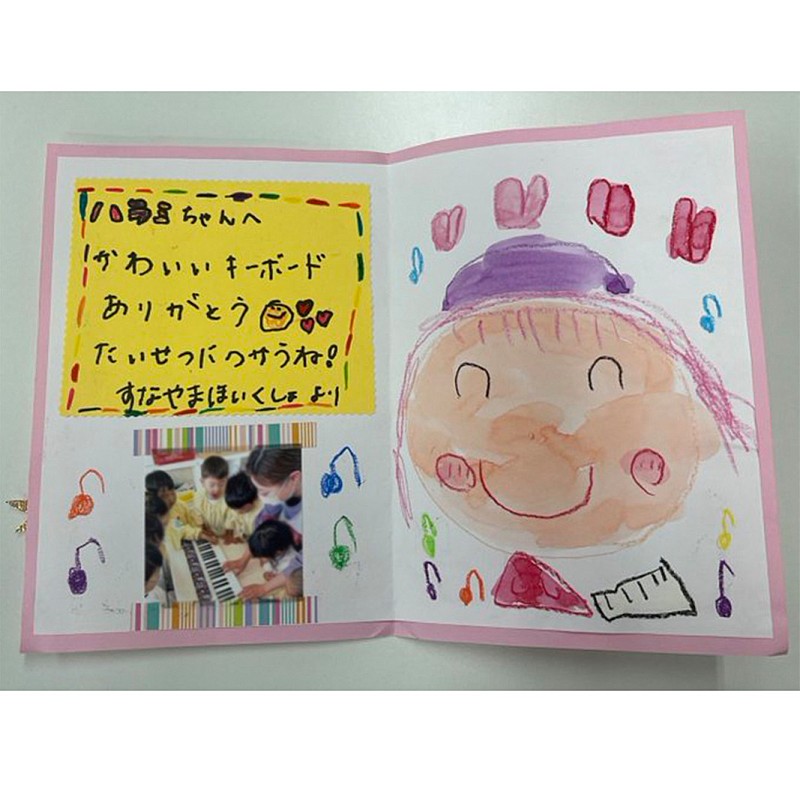 ちゃんへ
かわいいキーボード
ありがとう
たいせつにつかうね!
すなやまほいくしょ より